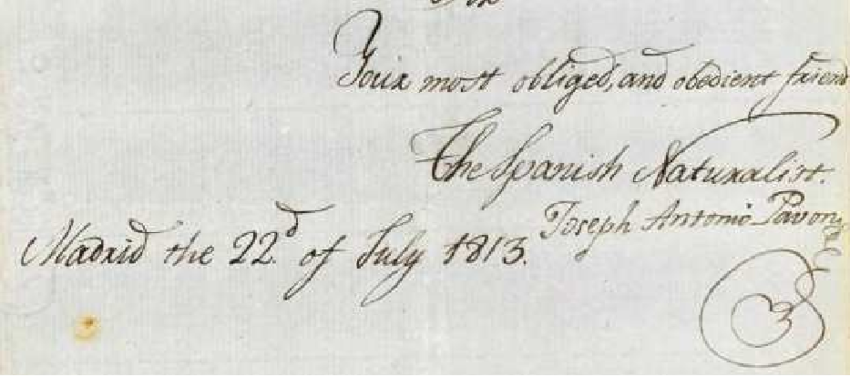 Your most obliged, and obedient friend
The Spanish Naturalist.
Joseph Antonio Pavon
Madrid the 22.d of July 1813.